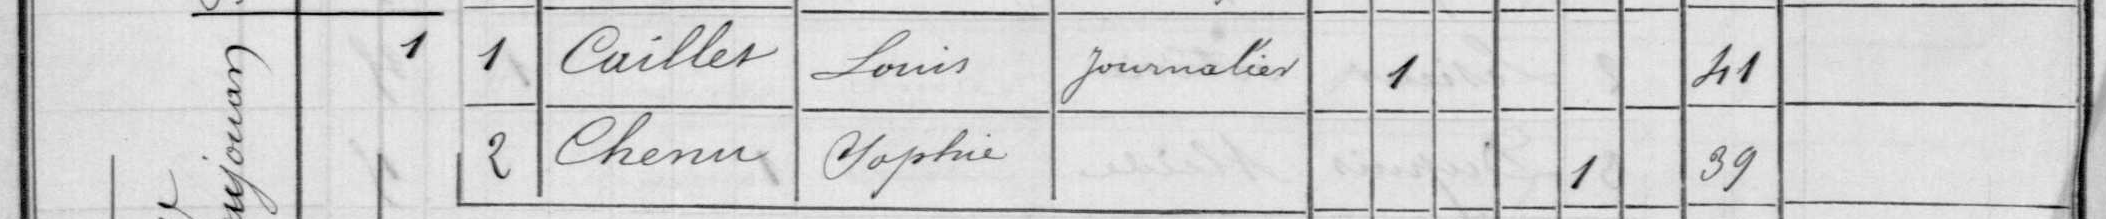 1 1 Caillet Louis Journalier 1 41
2 Chenu Sophie 1 39